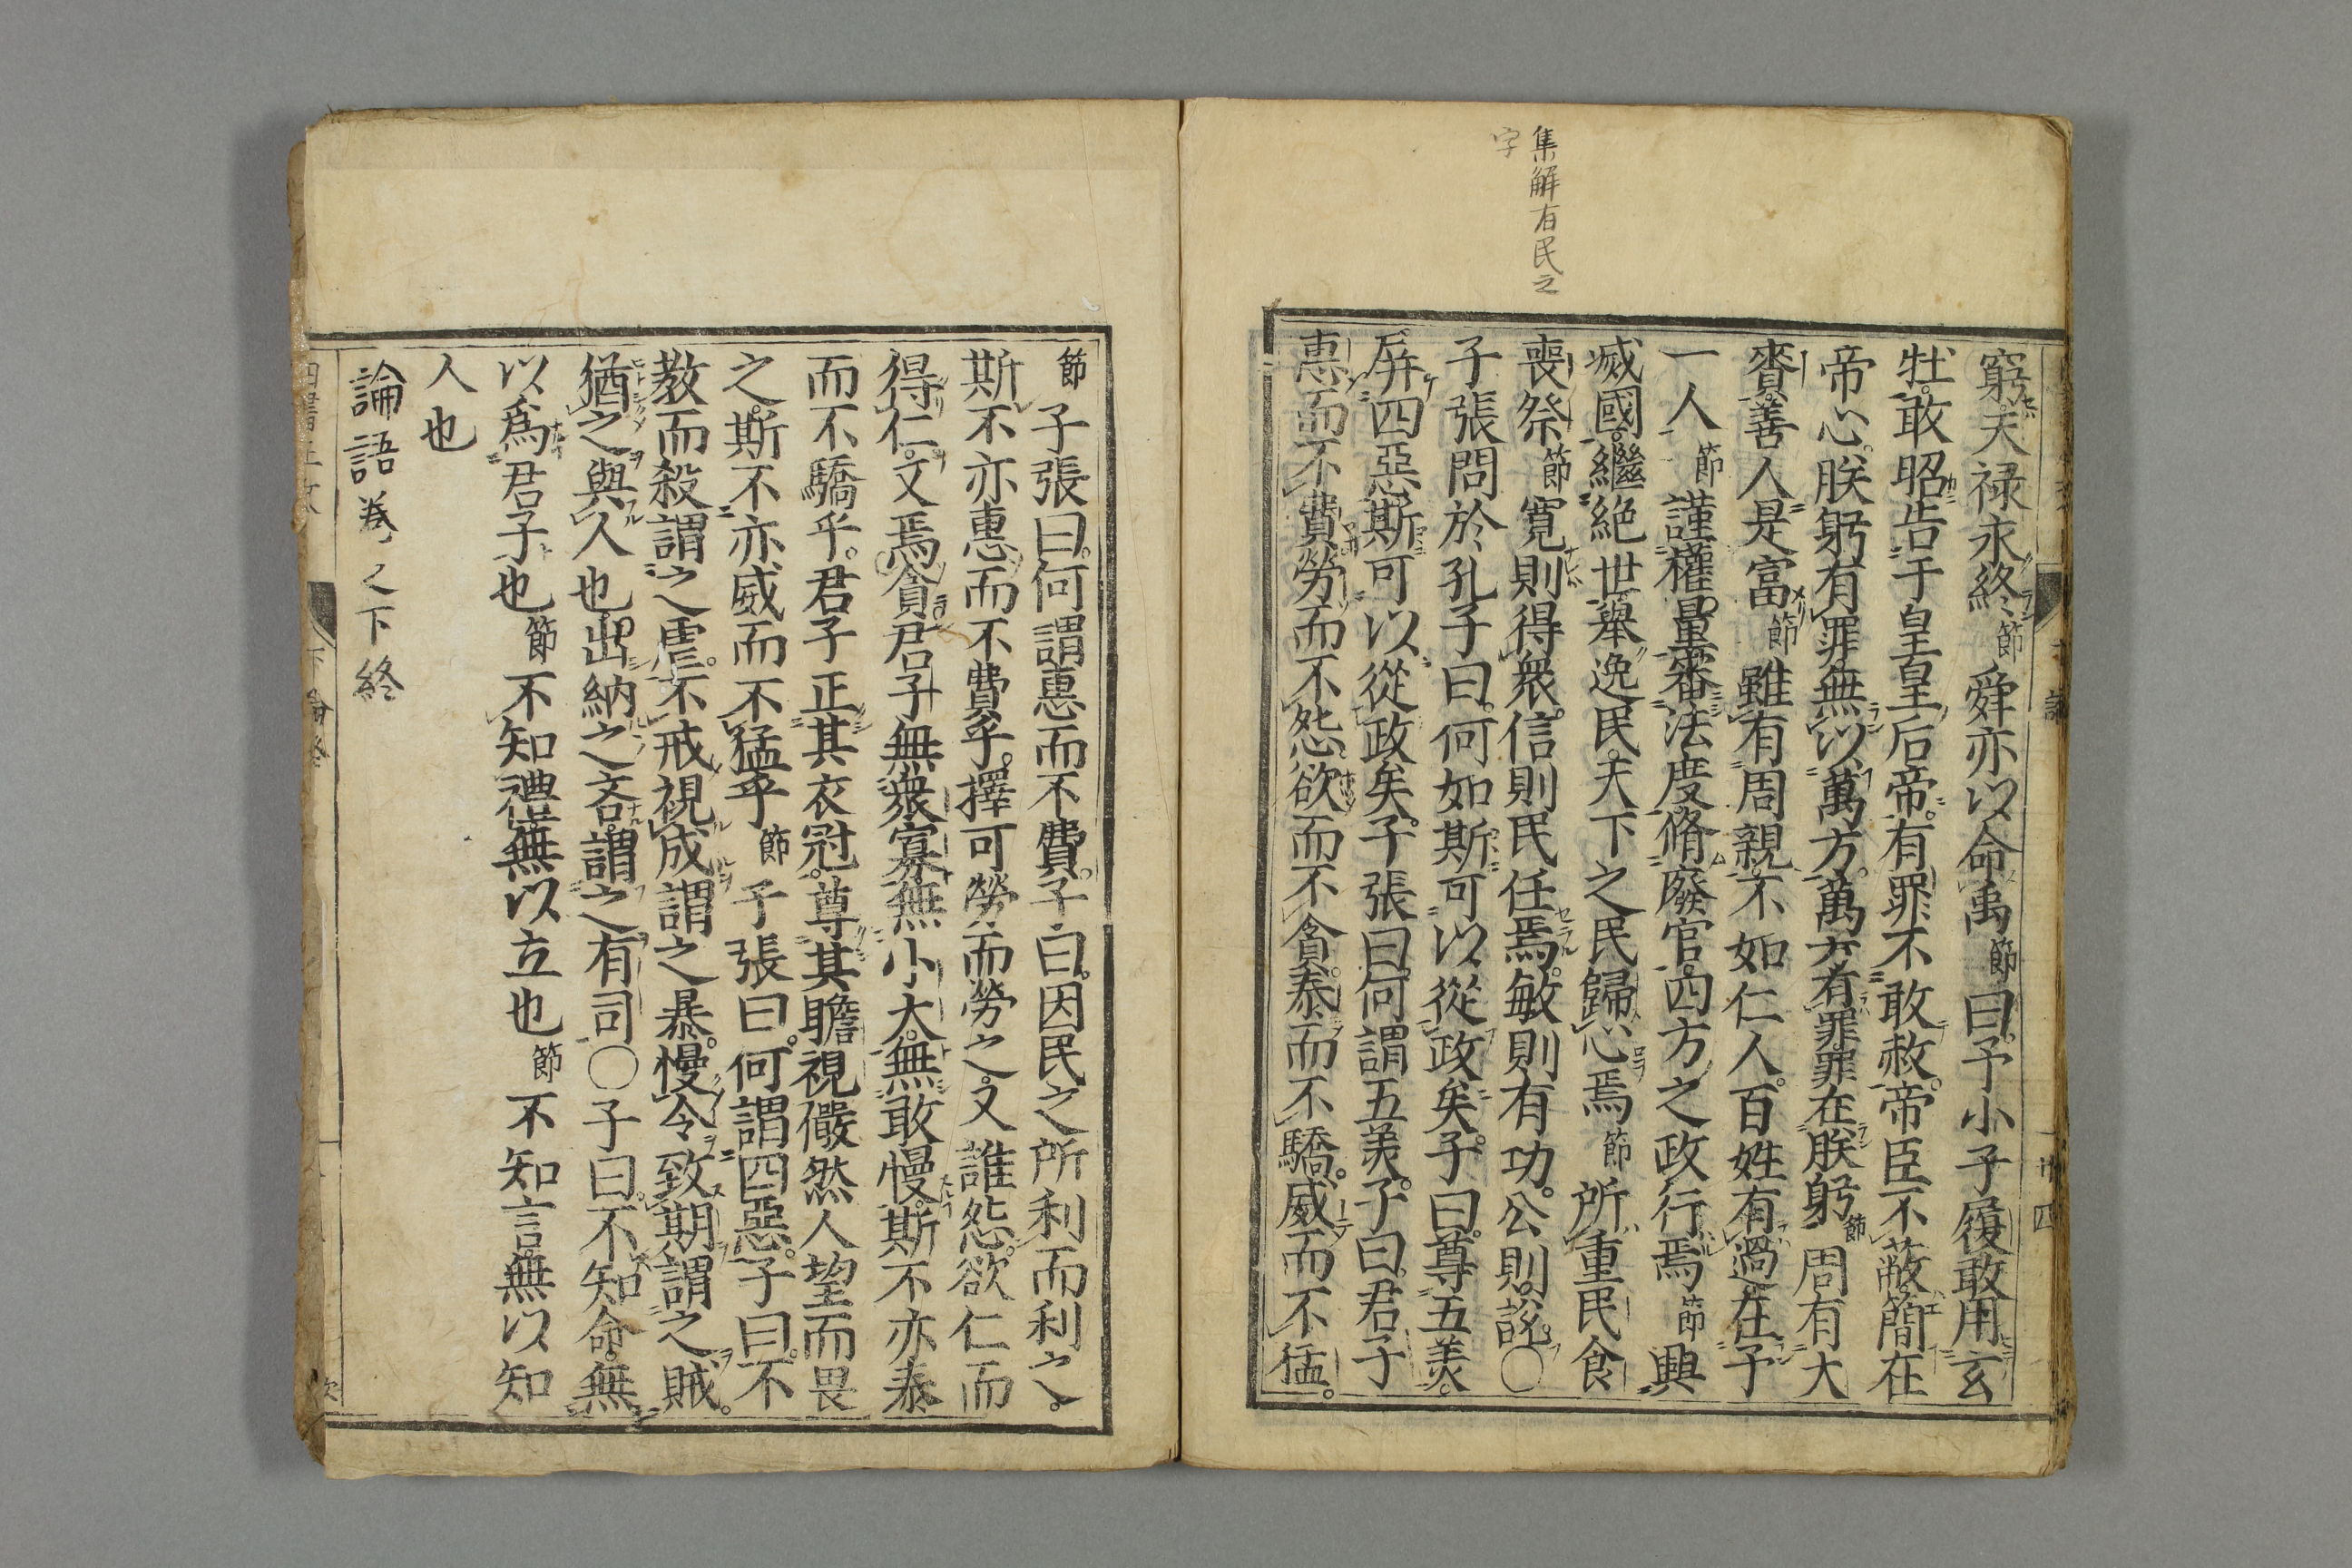 集解有民之
字
窮天禄永終節舜亦以命禹節曰予小子履敢用玄
牡敢昭告于皇皇后帝有罪不敢赦帝臣不蔽簡在
帝心朕躬有罪無以萬方萬方有罪罪在朕躬節周有大
賚善人是富節雖有周親不如仁人百姓有過在予
一人節謹權量審法度脩廢官四方之政行焉節興
滅國繼絶世舉逸民天下之民歸心焉節所重民食
喪祭節寛則得衆信則民任焉敏則有功公則説○
子張問於孔子曰何如斯可以從政矣子曰尊五美
屏四惡斯可以從政矣子張曰何謂五美子曰君子
惠而不費勞而不怨欲而不貪泰而不驕威而不猛
節子張曰何謂惠而不費子曰因民之所利而利之
斯不亦惠而不費乎擇可勞而勞之又誰怨欲仁而
得仁又焉貪君子無衆寡無小大無敢慢斯不亦泰
而不驕乎君子正其衣冠尊其瞻視儼然人望而畏
之斯不亦威而不猛乎節子張曰何謂四惡子曰不
教而殺謂之虐不戒視成謂之暴慢令致期謂之賊
猶之與人也出納之吝謂之有司○子曰不知命無
以爲君子也節不知禮無以立也節不知言無以知
人也
論語巻之下終